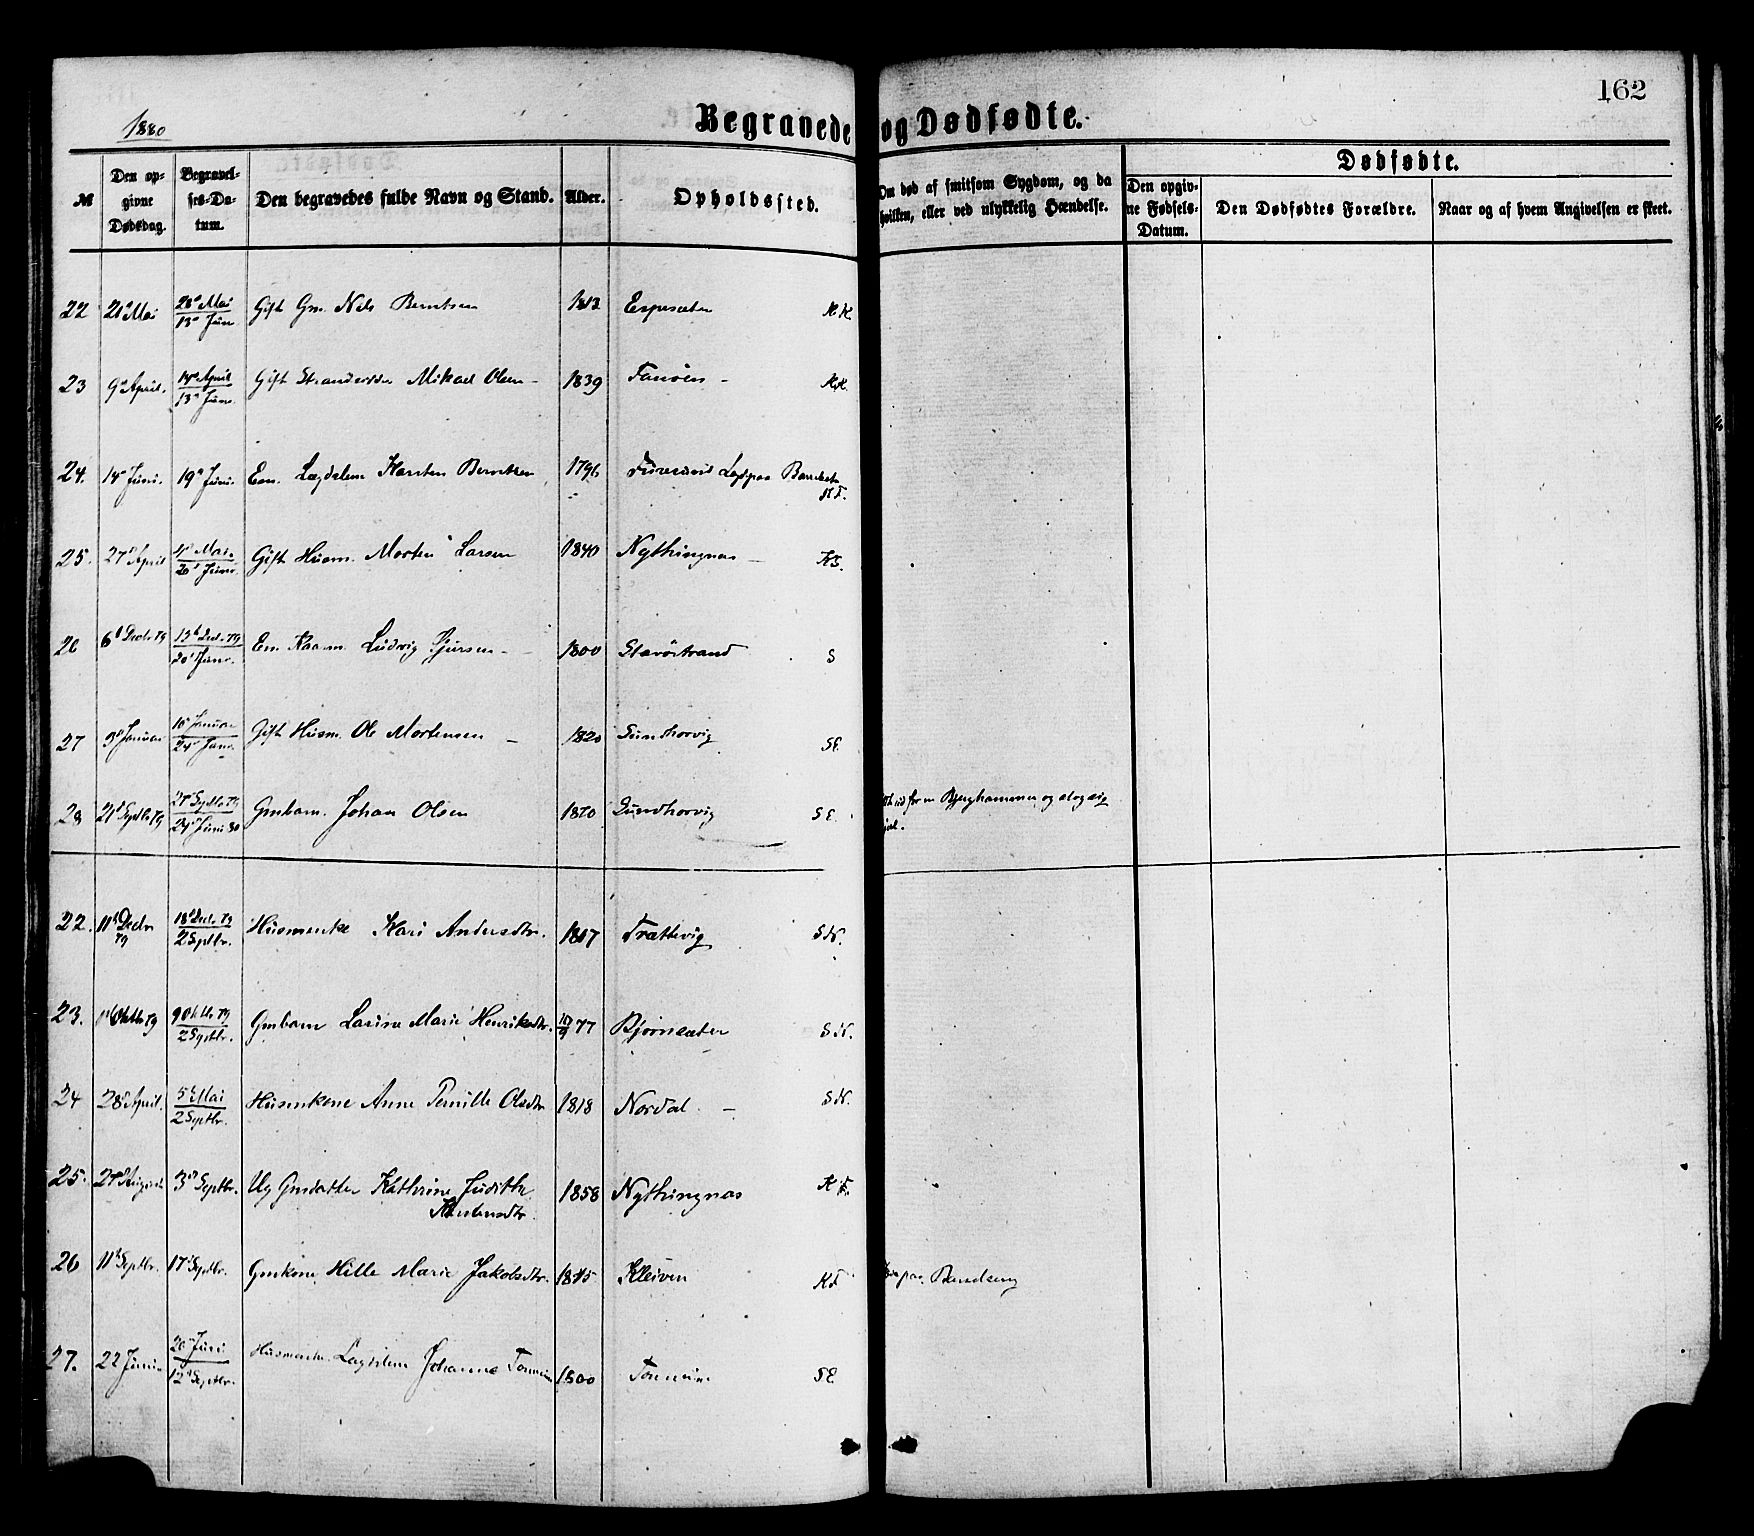 162
1880
Begravede og Dødfødte.
№ Den opgivne Dødsdag. Begravelses-Datum. Den begravedes fulde Navn og Stand. Alder. Opholdssted. Om død af smitsom Sygdom, og da hvilken, eller ved ulykkelig Hændelse. Dødfødte.
Den opgivne Fødsels-Datum. Den Dødfødtes Forældre. Naar og af hvem Angivelsen er skeet.
22 21 Mai 28 Mai / 13 Juni Gift Gm. Nils Berntsen 1813 Espesæter K.K.
23 9 April. 14 April / 13 Juni Gift Mikael Olsen - 1839 - K.K.
24. 14 Juni. 19 Juni. Em. Lægdslem Karsten Berntsen 1796 K.F.
25. 27 April Mai / 20 Juni. Gift Husm. Morten Larsen 1840 Nythingnæs - K.F.
26 6 Decbr 79 13 Decbr 79 / 20 Juni. Em. Kaarm. Ludvig 1800 S
27 3 Januar Januar / 24 Juni. Gift Husm. Ole Mortensen - 1820 Sundhorvig SE.
28 21 Septbr 79 27 Septbr 79 / 24 Juni 80 Gmbarn. Johan Olsen 1870 Sundhorvig SE. ud for en Bjerghammer og slog sig
22. 11 Decbr 79 18 Decbr 79 / 2 Septbr. Husmenke Kari Andersdtr. 1817 Trættevig SN.
23. Oktbr 79 9 Oktbr 79 / 2 Septbr. Gmbarn Larine Marie Henriksdtr. 77 Bjørnsæter SN.
24 28 April. 5 Mai / 2 Septbr. Husmkone Anne Pernille Olsdtr 1818 Nordal - SN.
25. 27 August 3 Septbr. Ug Gmdatter Kathrine Judithe Karstensdtr. 1858 Nythingnæs K F.
26 11 Septbr. 17 Septbr. Gmkone Hille Marie Jakobsdtr. 1845 Kleiven KF paa Barselseng
27. 22 Juni Juni / 12 Septbr. Lægdslem Johanne 1800 SE.